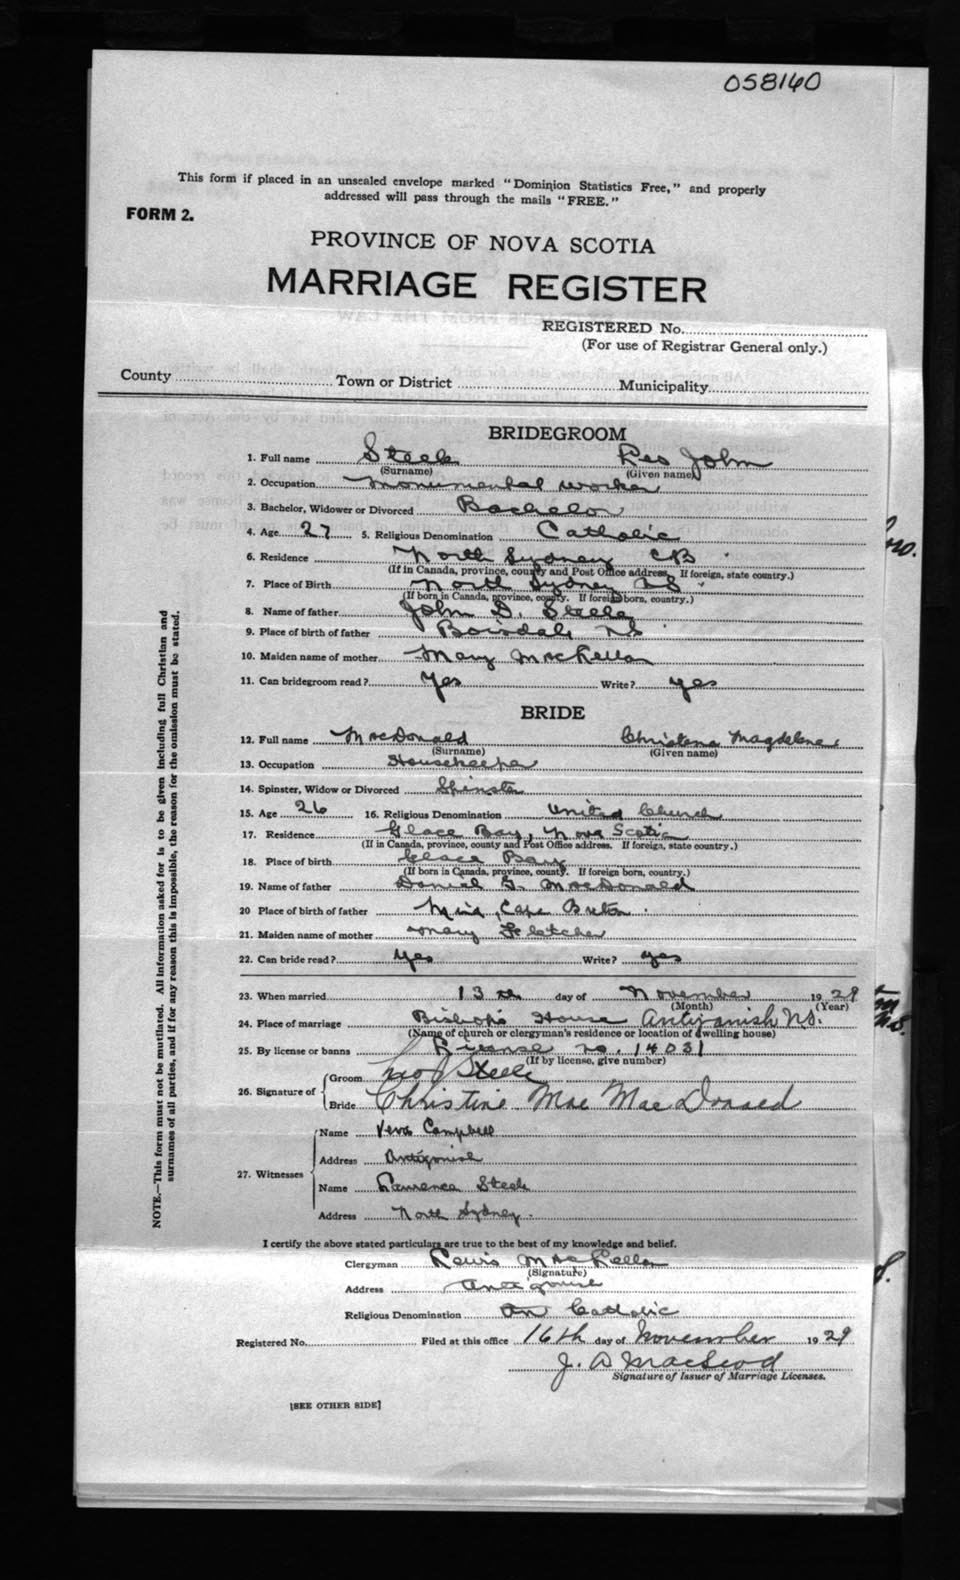 058160
This form if placed in an unsealed envelope marked "Dominion Statistics Free," and properly
addressed will pass through the mails "FREE."
FORM 2.
PROVINCE OF NOVA SCOTIA
MARRIAGE REGISTER
REGISTERED No.
(For use of Registrar General only.)
County Town or District Municipality
BRIDEGROOM
1. Full name Steele Leo John
(Surname) (Given name)
2. Occupation Monumental worker
3. Bachelor, Widower or Divorced Bachelor
4. Age 27 5. Religious Denomination Catholic
6. Residence North Sydney CB
(If in Canada, province, county and Post Office address. If foreign, state country.)
7. Place of Birth North Sydney NS
(If born in Canada, province, county. If foreign born, country.)
8. Name of father John D. Steele
9. Place of birth of father Boisdale NS
10. Maiden name of mother Mary MacKellar
11. Can bridegroom read? Yes Write? yes
BRIDE
12. Full name MacDonald Christena Magdelene
(Surname) (Given name)
13. Occupation Housekeeper
14. Spinster, Widow or Divorced Spinster
15. Age 26 16. Religious Denomination United Church
17. Residence Glace Bay, Nova Scotia
(If in Canada, province, county and Post Office address. If foreign, state country.)
18. Place of birth Glace Bay
(If born in Canada, province, county. If foreign born, country.)
19. Name of father Daniel G. MacDonald
20 Place of birth of father Mira, Cape Breton
21. Maiden name of mother Mary Fletcher
22. Can bride read? Yes Write? yes
23. When married 13th day of November 1929
(Month) (Year)
24. Place of marriage Bishop's House Antigonish N.S.
(Name of church or clergyman's residence or location of dwelling house)
25. By license or banns License no. 14031
(If by license, give number)
26. Signature of
Groom Leo J Steele
Bride Christine Mae MacDonald
27. Witnesses
Name Vera Campbell
Address Antigonish
Name Lawrence Steele
Address North Sydney.
I certify the above stated particulars are true to the best of my knowledge and belief.
Clergyman Lewis MacKellar
(Signature)
Address Antigonish
Religious Denomination Catholic
Registered No. Filed at this office 16th day of November 1929
J. D MacLeod
Signature of Issuer of Marriage Licenses.
[SEE OTHER SIDE]
NOTE.—This form must not be mutilated. All information asked for is to be given including full Christian and
surnames of all parties, and if for any reason this is impossible, the reason for the omission must be stated.